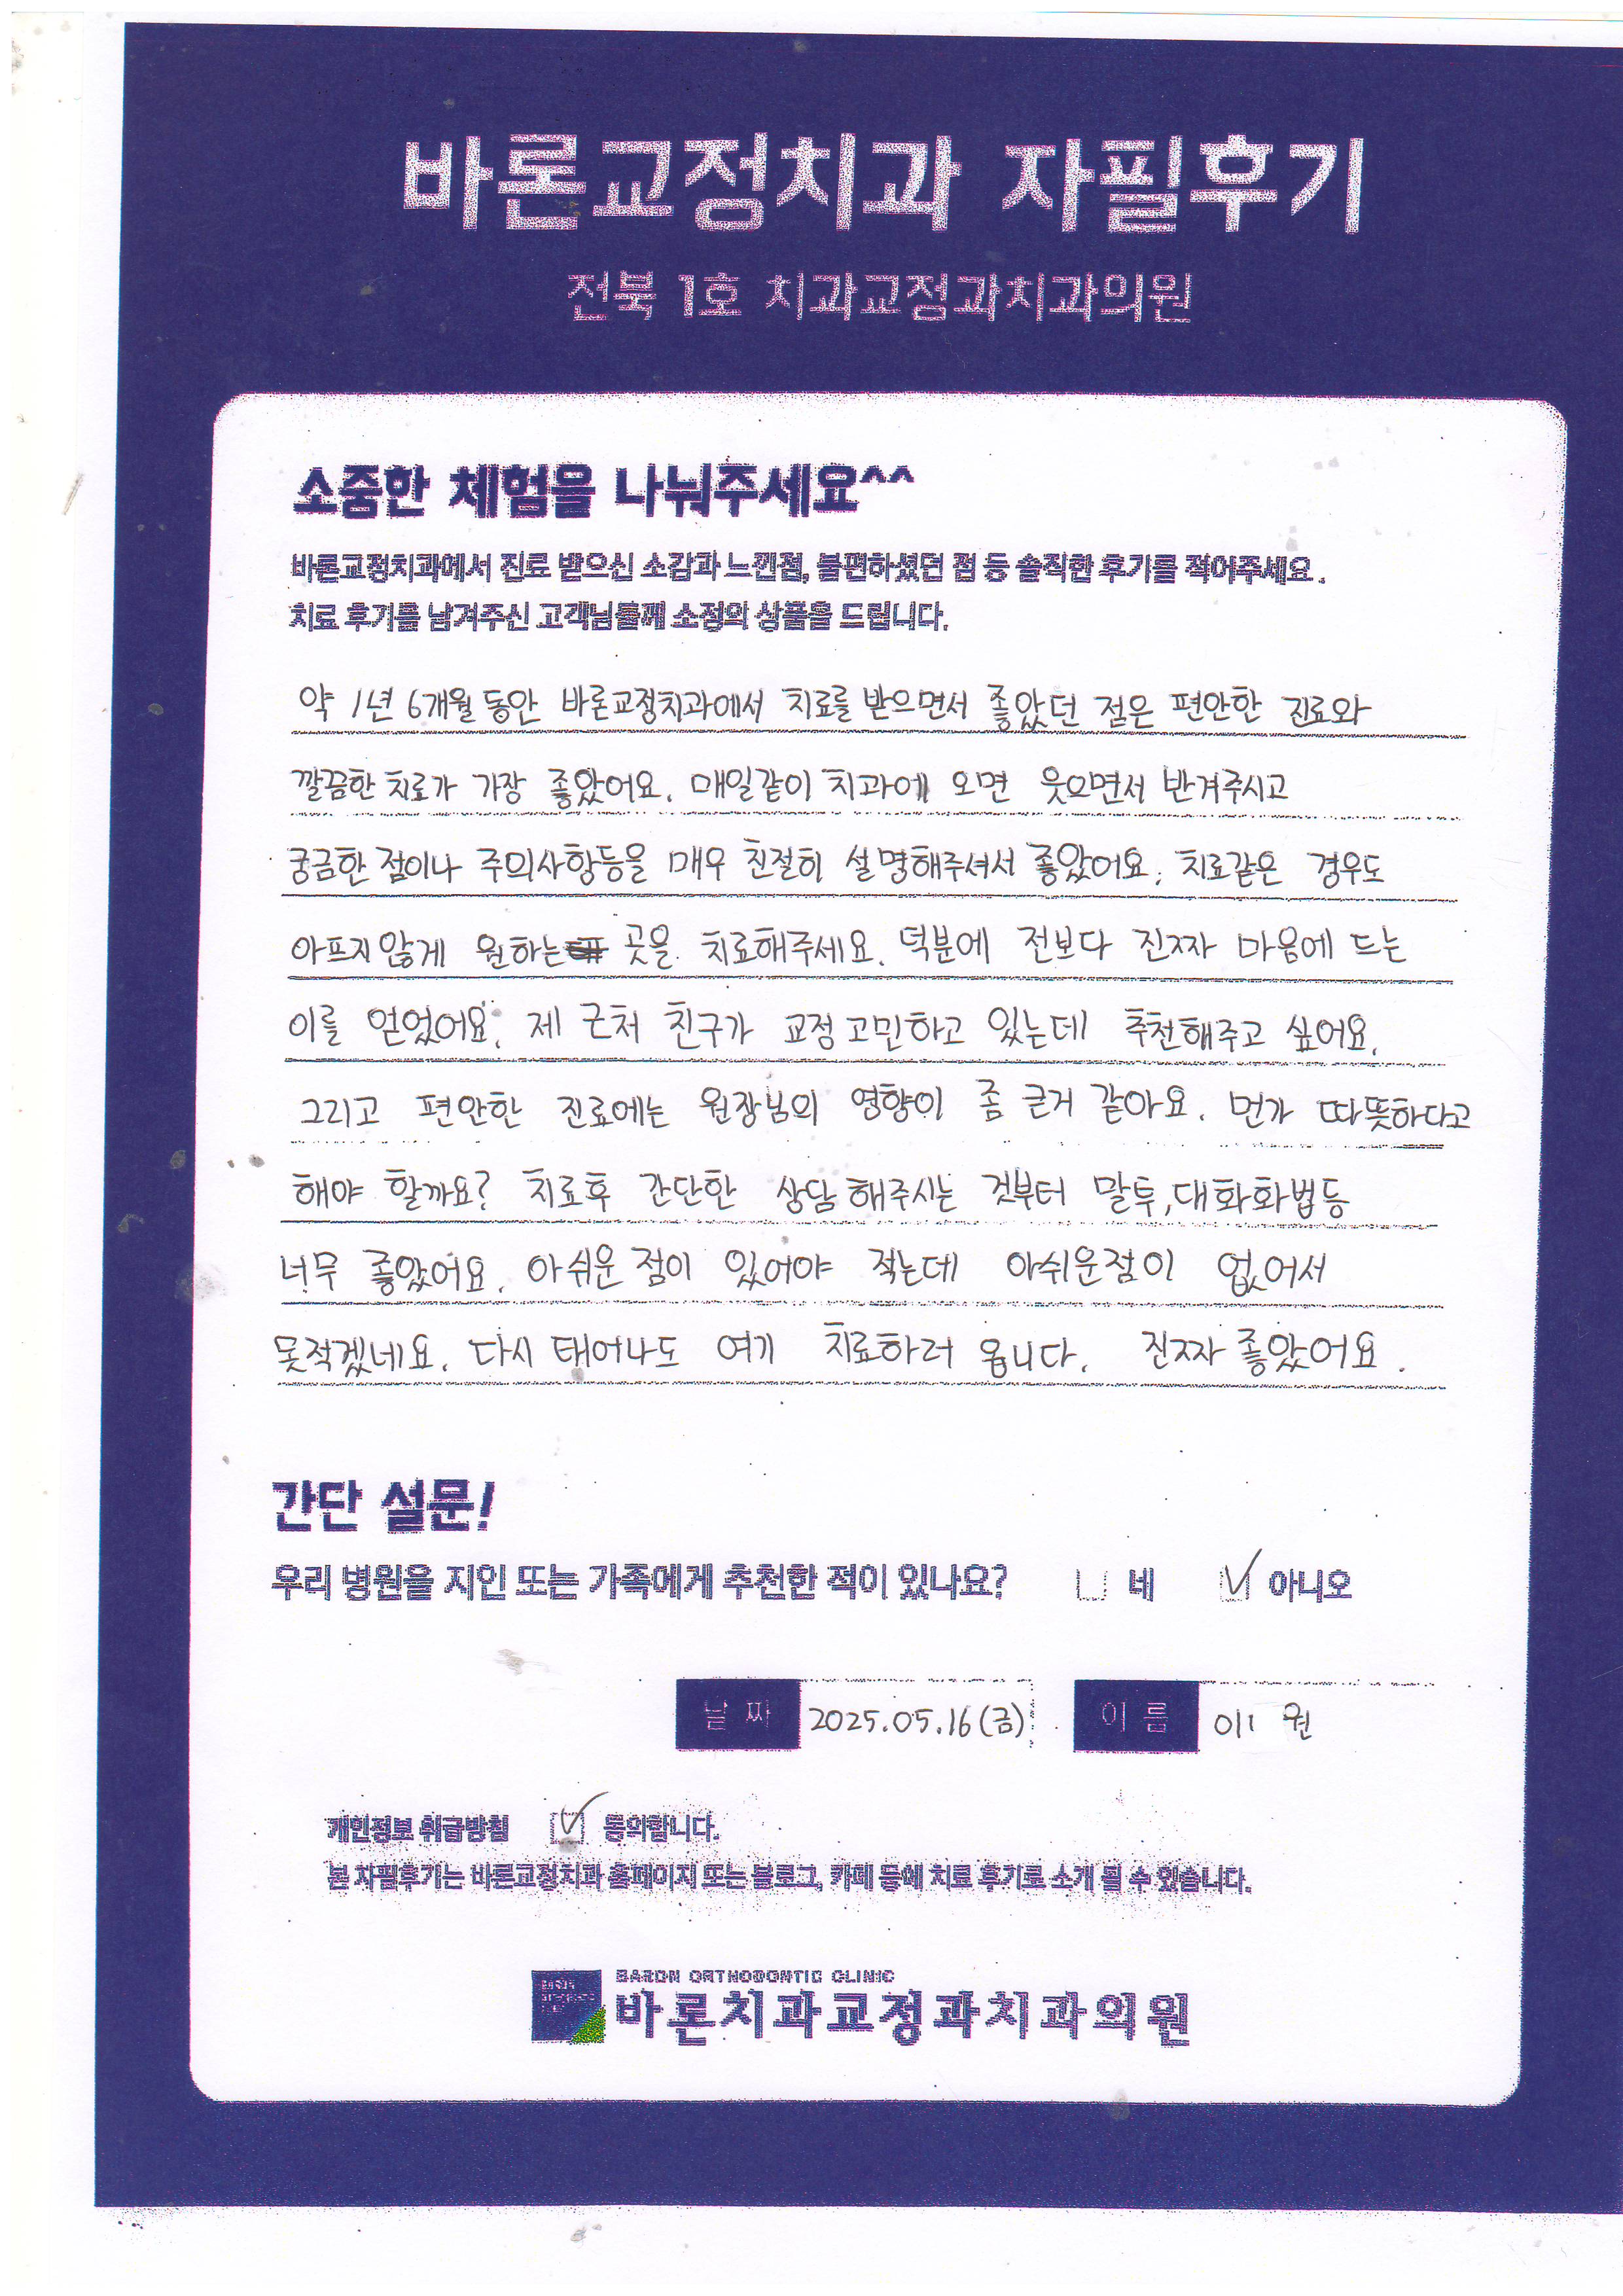 바론교정치과 자필후기
전북 1호 치과교정과치과의원
소중한 체험을 나눠주세요^^
바론교정치과에서 진료 받으신 소감과 느낀점, 불편하셨던 점 등 솔직한 후기를 적어주세요.
치료 후기를 남겨주신 고객님들께 소정의 상품을 드립니다.
약 1년 6개월 동안 바론교정치과에서 치료를 받으면서 좋았던 점은 편안한 진료와
깔끔한 치료가 가장 좋았어요. 매일같이 치과에 오면 웃으면서 반겨주시고
궁금한 점이나 주의사항등을 매우 친절히 설명해주셔서 좋았어요. 치료같은 경우도
아프지 않게 원하는 곳을 치료해주세요. 덕분에 전보다 진짜 마음에 드는
이를 얻었어요. 제 근처 친구가 교정 고민하고 있는데 추천해주고 싶어요.
그리고 편안한 진료에는 원장님의 영향이 좀 큰거 같아요. 먼가 따뜻하다고
해야 할까요? 치료후 간단한 상담 해주시는 것부터 말투, 대화화법등
너무 좋았어요. 아쉬운 점이 있어야 적는데 아쉬운점이 없어서
못적겠네요. 다시 태어나도 여기 치료하러 옵니다. 진짜 좋았어요.
간단 설문!
우리 병원을 지인 또는 가족에게 추천한 적이 있나요? 네 아니오
날짜 2025.05.16(금) 이름 이 원
개인정보 취급방침 동의합니다.
본 자필후기는 바론교정치과 홈페이지 또는 블로그, 카페 등에 치료 후기로 소개 될 수 있습니다.
BARON ORTHODONTIC CLINIC
바론치과교정과치과의원